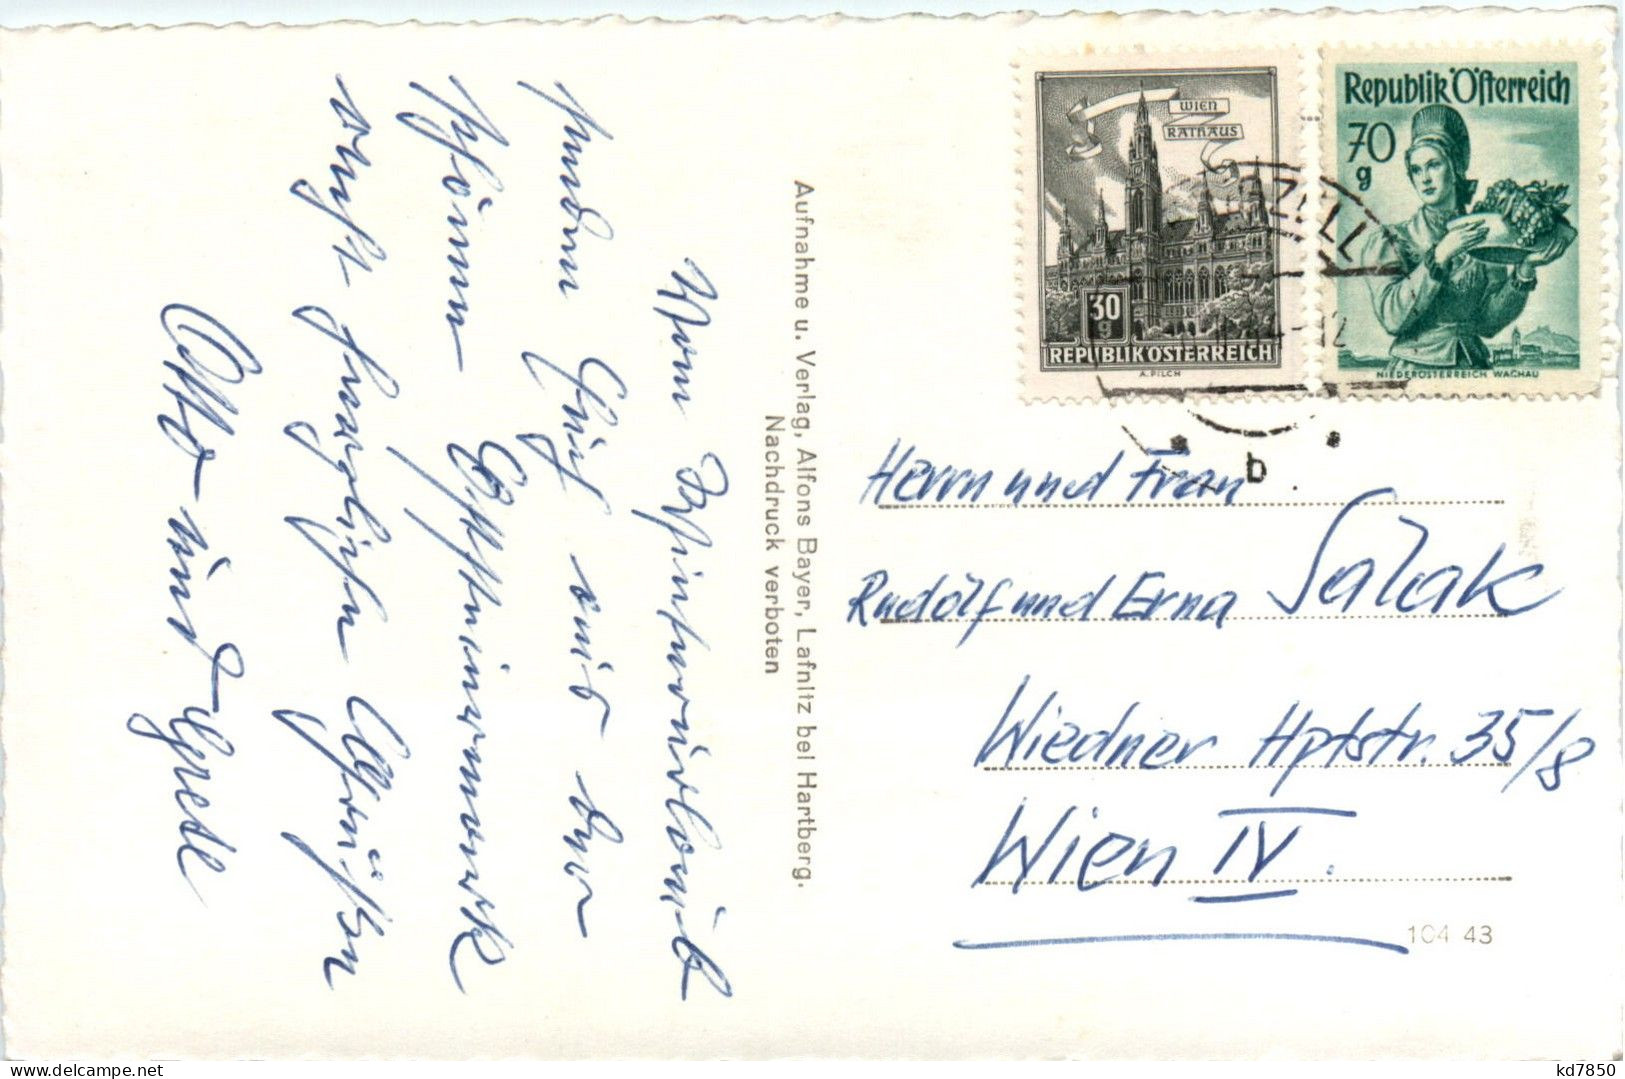 Vom Winterurlaub
senden Euch aus der
schönen Steiermark
recht herzliche Grüße
Otto und Grete
Aufnahme u. Verlag, Alfons Bayer, Lafnitz bei Hartberg.
Nachdruck verboten
WIEN
RATHAUS
30
g
REPUBLIK ÖSTERREICH
A. PILCH
Republik Österreich
70
g
NIEDERÖSTERREICH WACHAU
ZELL
12
b
Herrn und Frau
Rudolf und Erna Salak
Wiedner Hptstr. 35/8
Wien IV.
104 43
kd7850